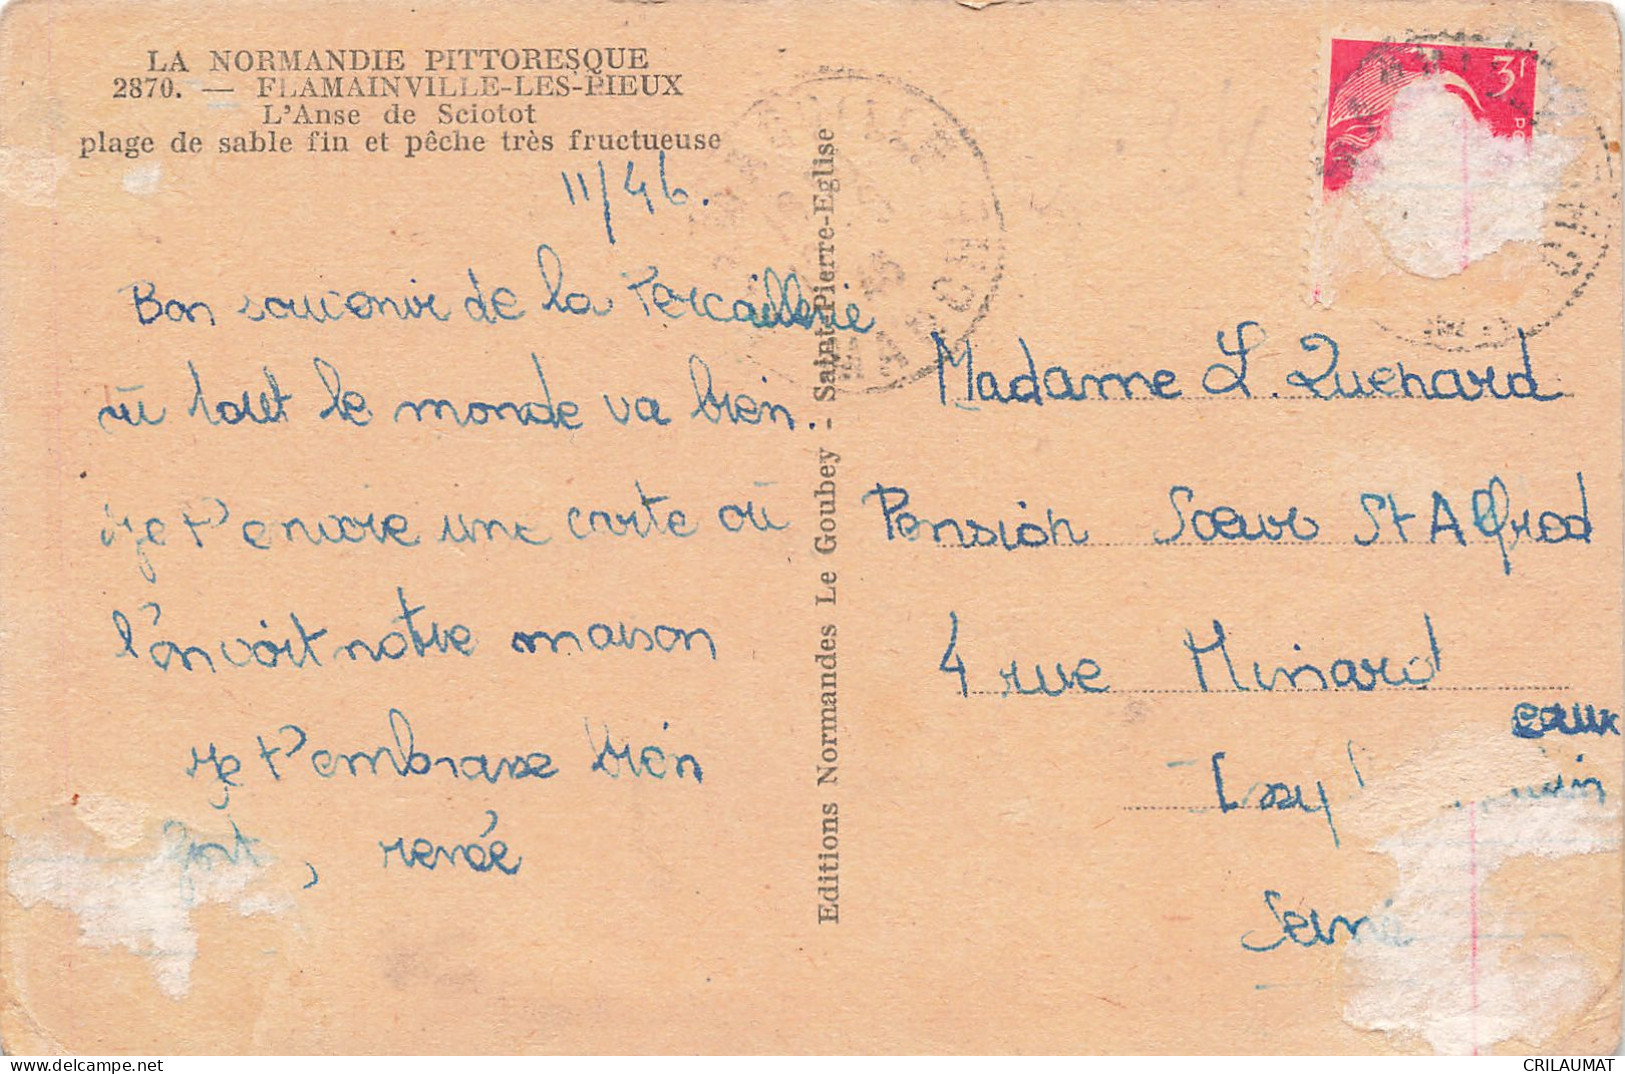 LA NORMANDIE PITTORESQUE
2870. — FLAMAINVILLE-LES-PIEUX
L'Anse de Sciotot
plage de sable fin et pêche très fructueuse
11/46.
Bon souvenir de la Percaillerie
où tout le monde va bien.
je t'envoie une carte où
l'on voit notre maison
je t'embrasse bien
fort, renée
Editions Normandes Le Goubey - Saint-Pierre-Eglise
3f
MANCHE
Madame L. Quenard
Pension Sœur St Alfred
4 rue Minard
eaux
Issy
Seine
CRILAUMAT